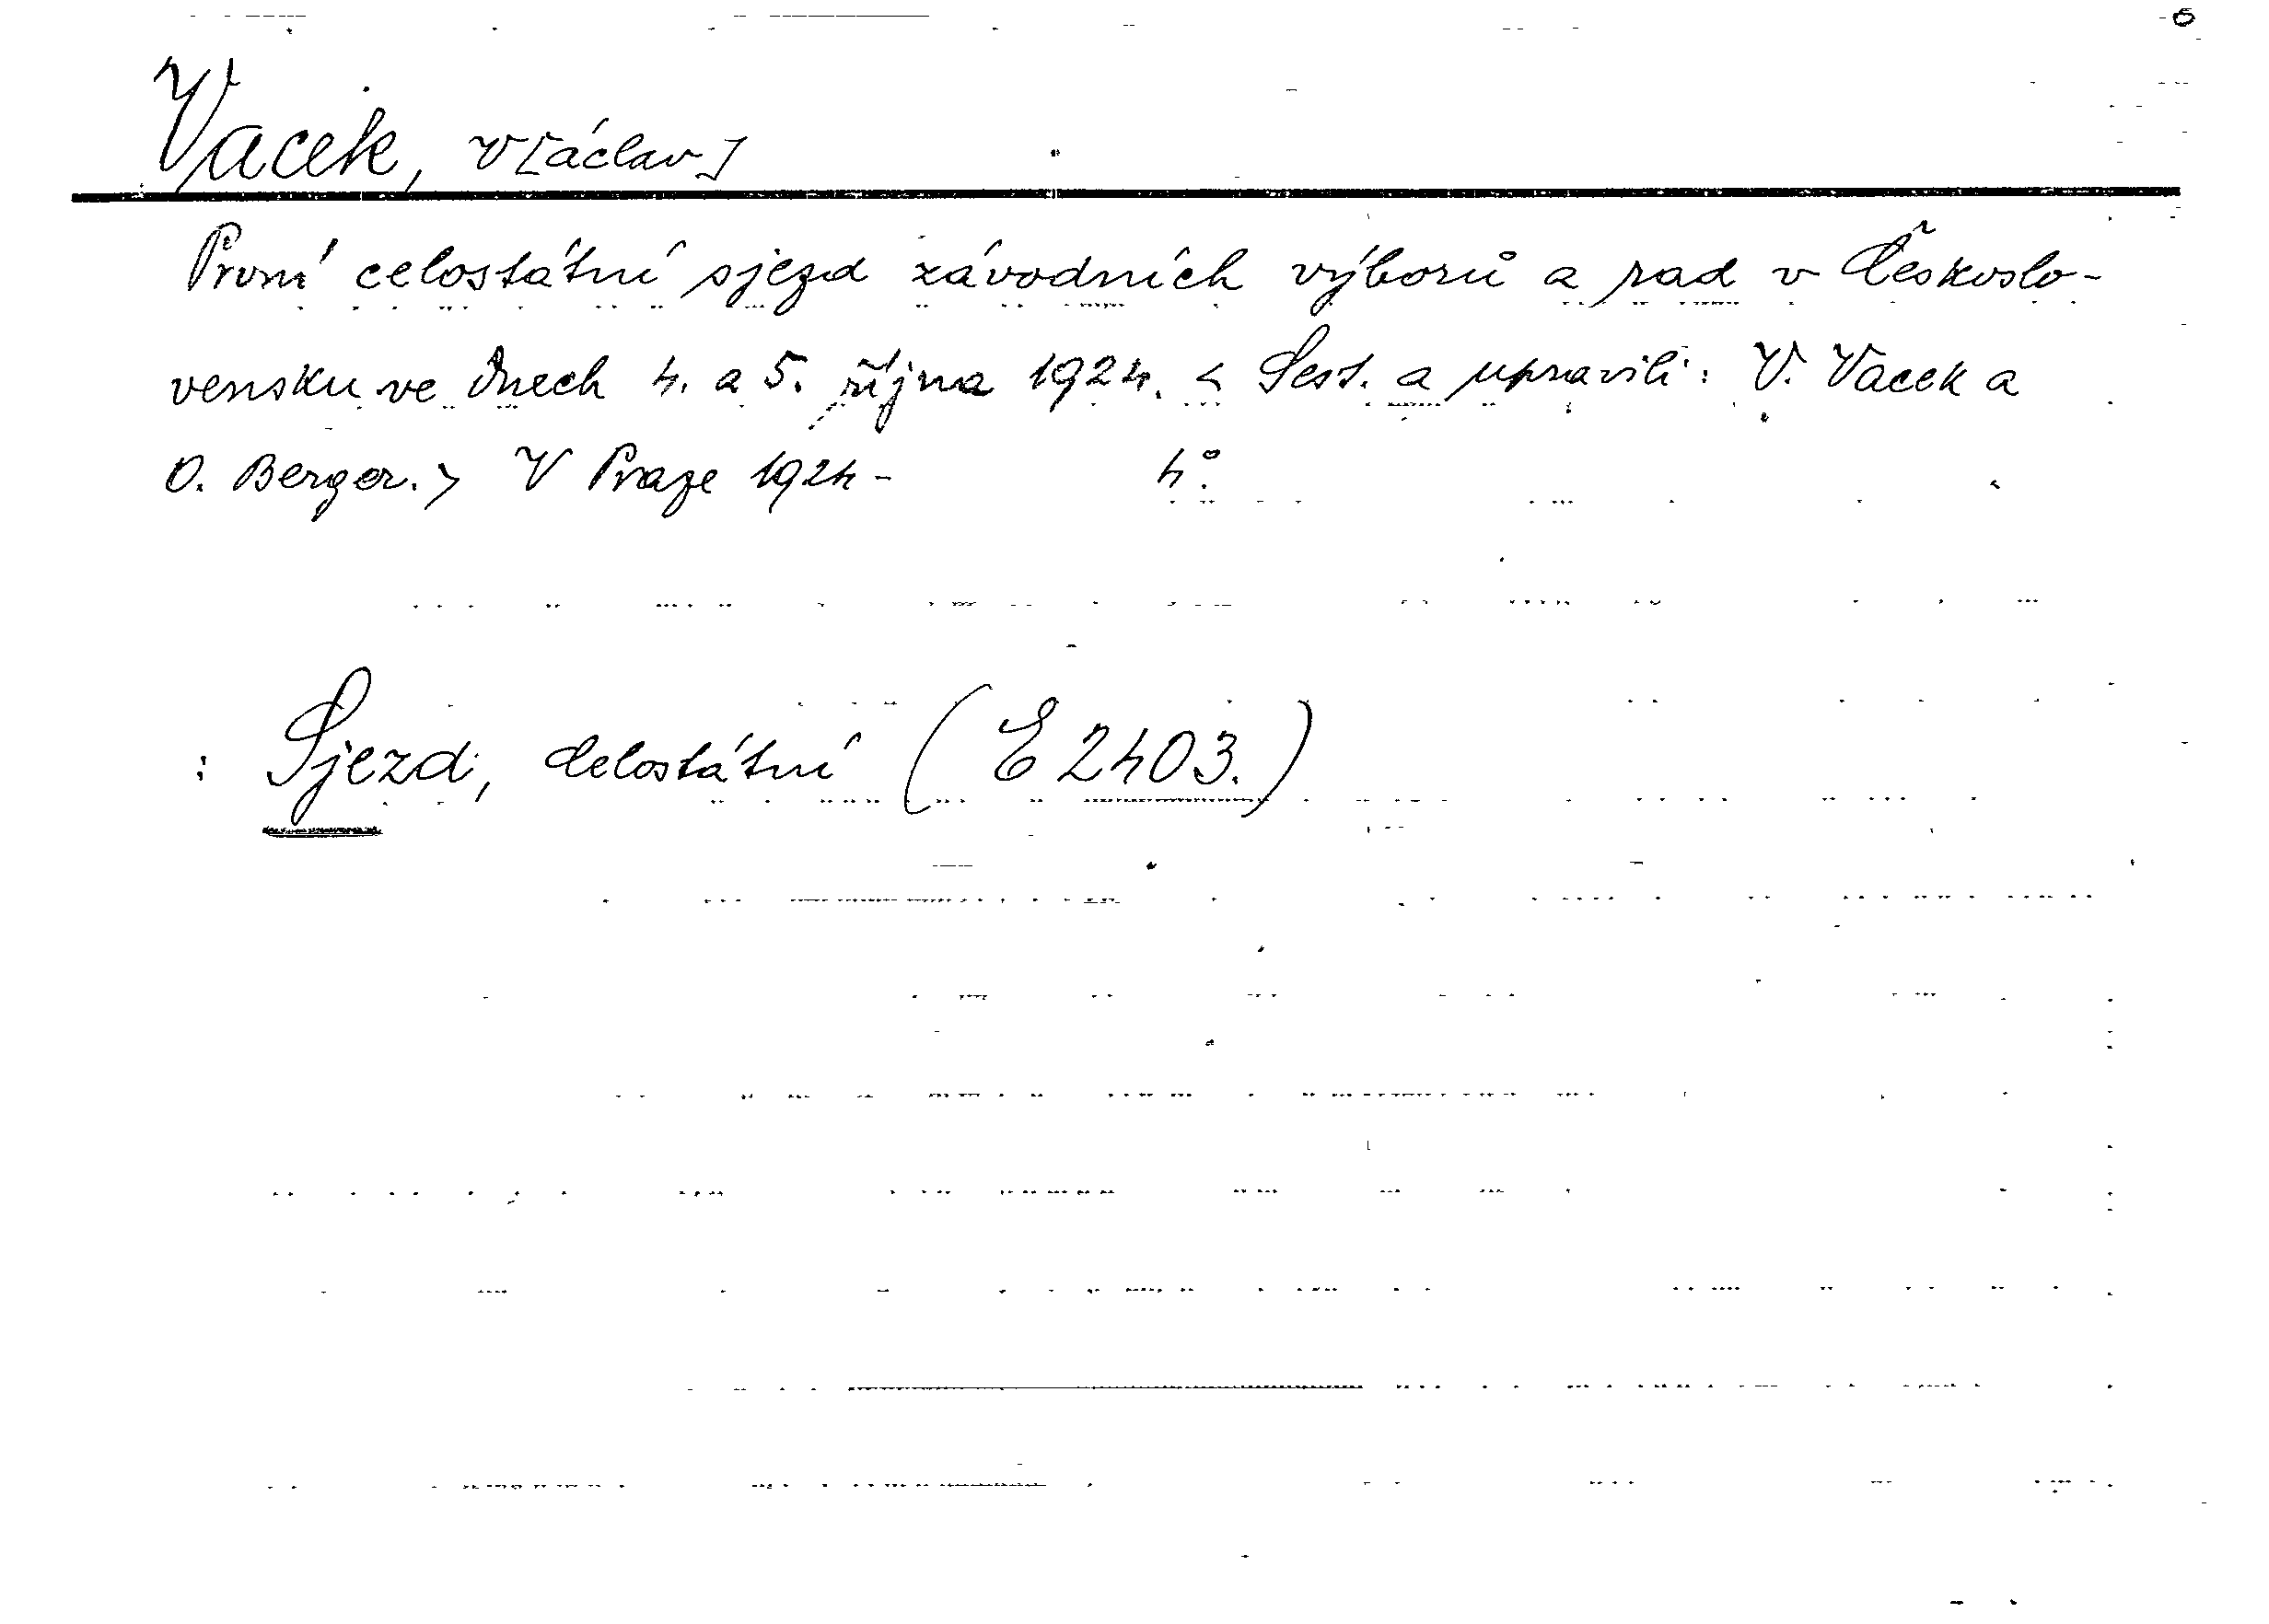 Vacek, V[áclav]
První celostátní sjezd závodních výborů a rad v Českoslo-
vensku ve dnech 4. a 5. října 1924. < Sest. a upravili: V. Vacek a
O. Berger. > V Praze 1924 - 4°.
: Sjezd, celostátní (E 2403.)